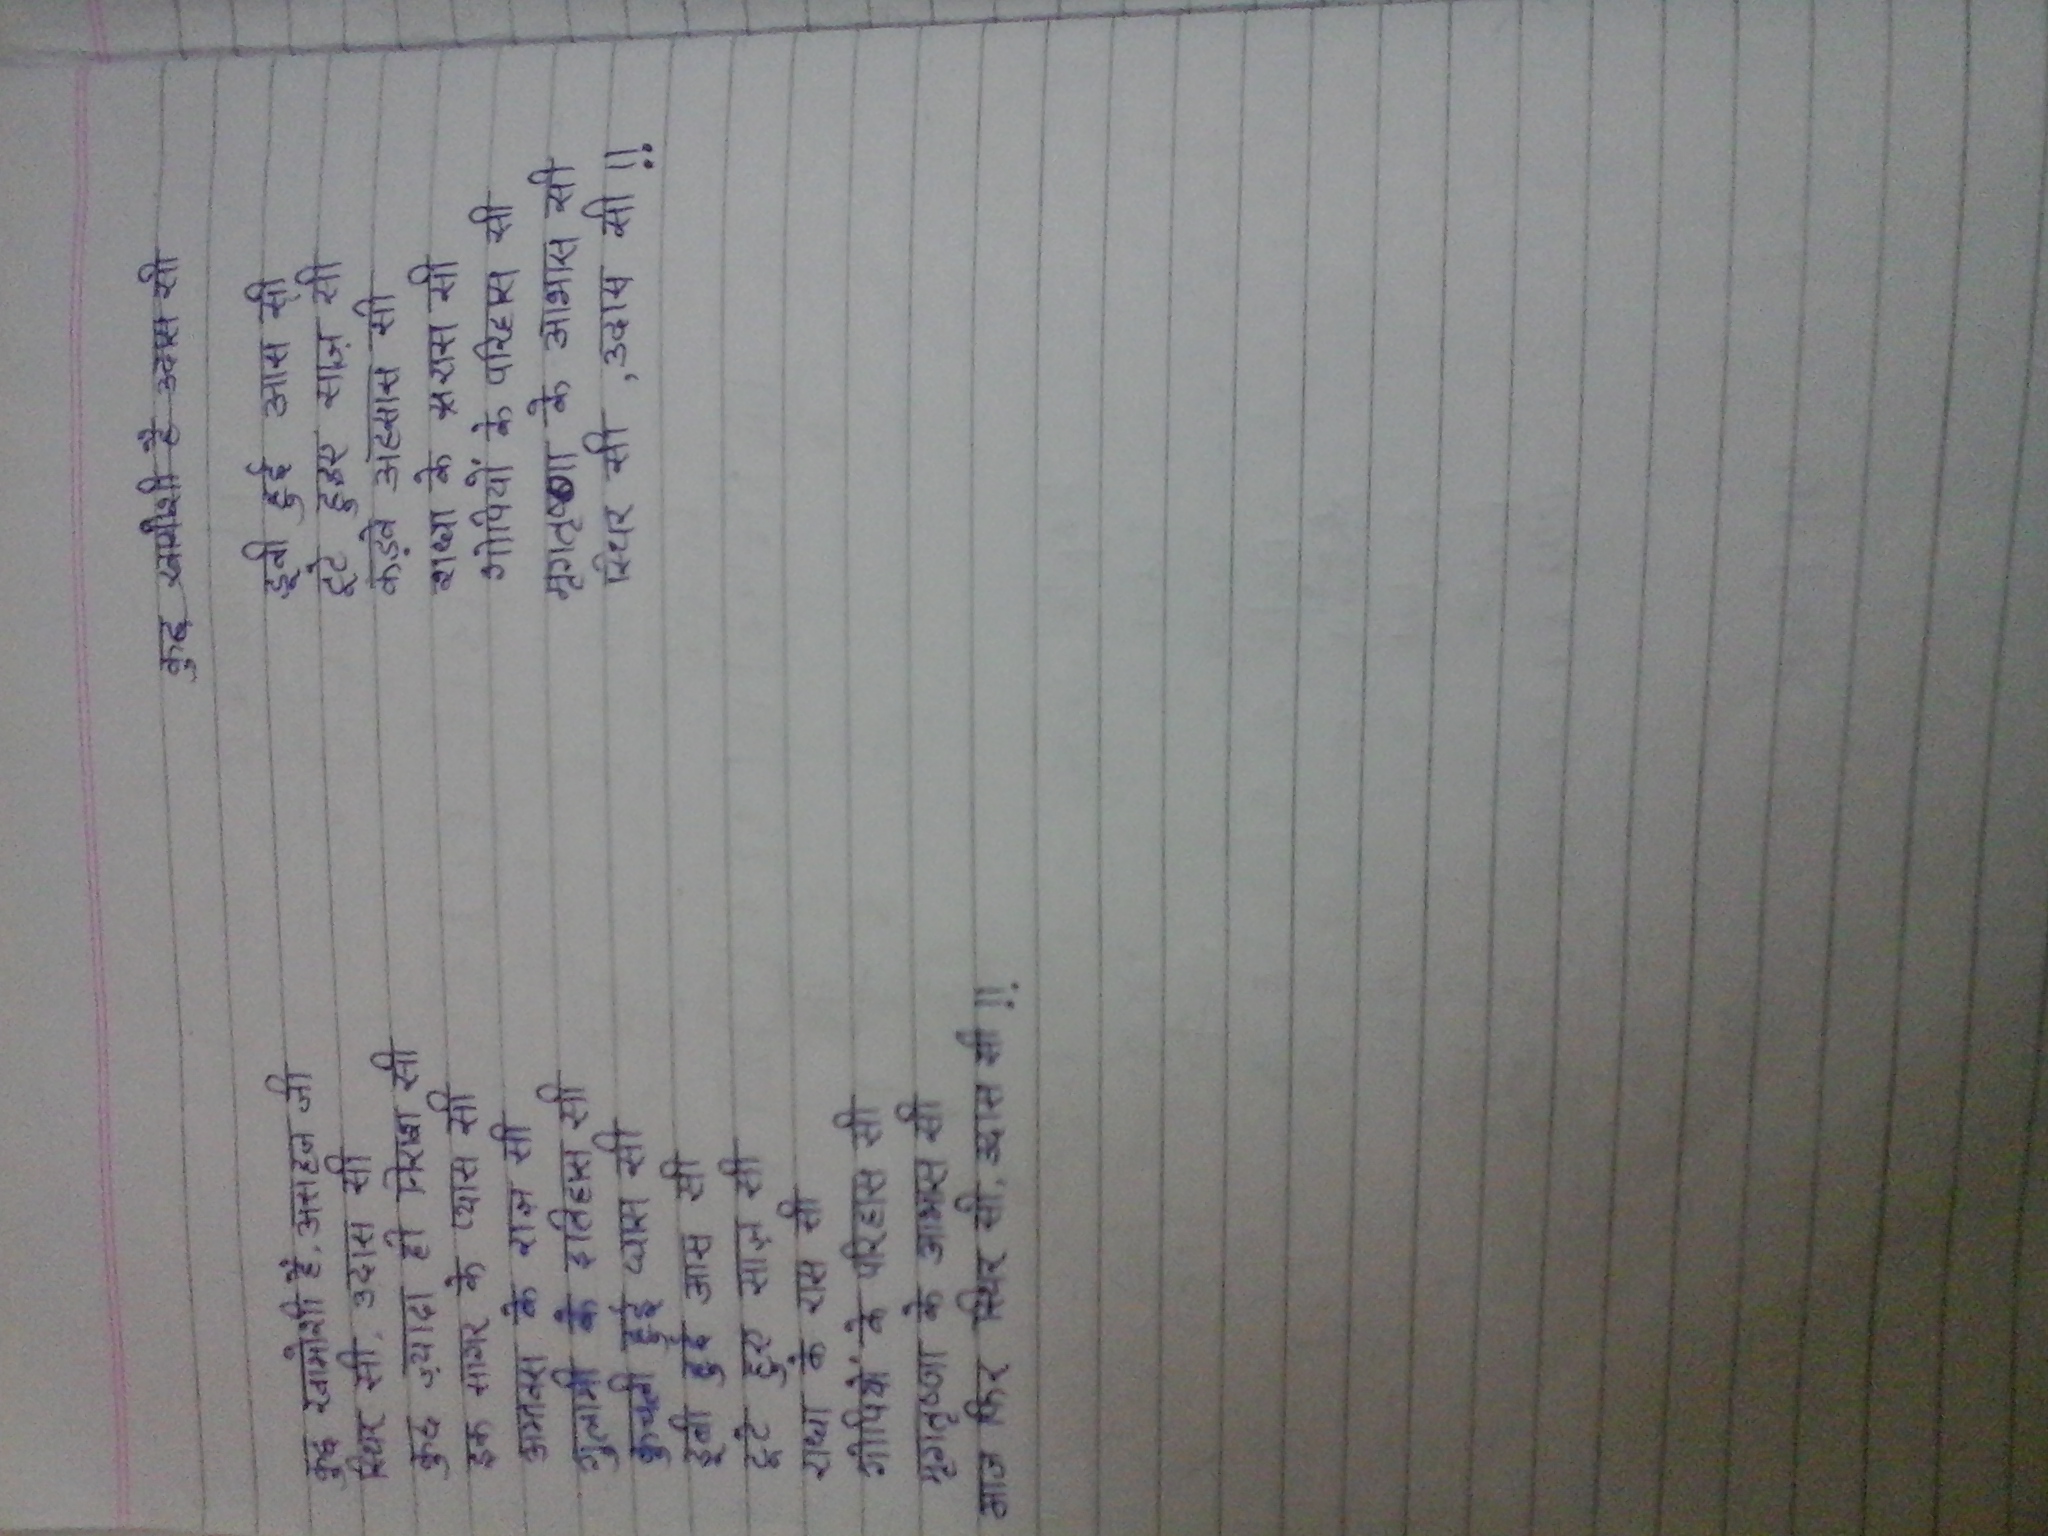 कुछ खामोशी है, असहज जी
स्थिर सी, उदास सी
कुछ ज़्यादा ही निराश सी
इक सागर के प्यास सी
अमावस के राज़ सी
गुलामी के इतिहास सी
कुचली हुई घास सी
डूबी हुई आस सी
टूटे हुए साज़ सी
राधा के रास सी
गोपियों के परिहास सी
मृगतृष्णा के आभास सी
आज फिर स्थिर सी, उदास सी !!
कुछ खामोशी है उदास सी
डूबी हुई आस सी
टूटे हुए साज़ सी
कड़वे अहसास सी
राधा के रास सी
गोपियों के परिहास सी
मृगतृष्णा के आभास सी
स्थिर सी , उदास सी !!